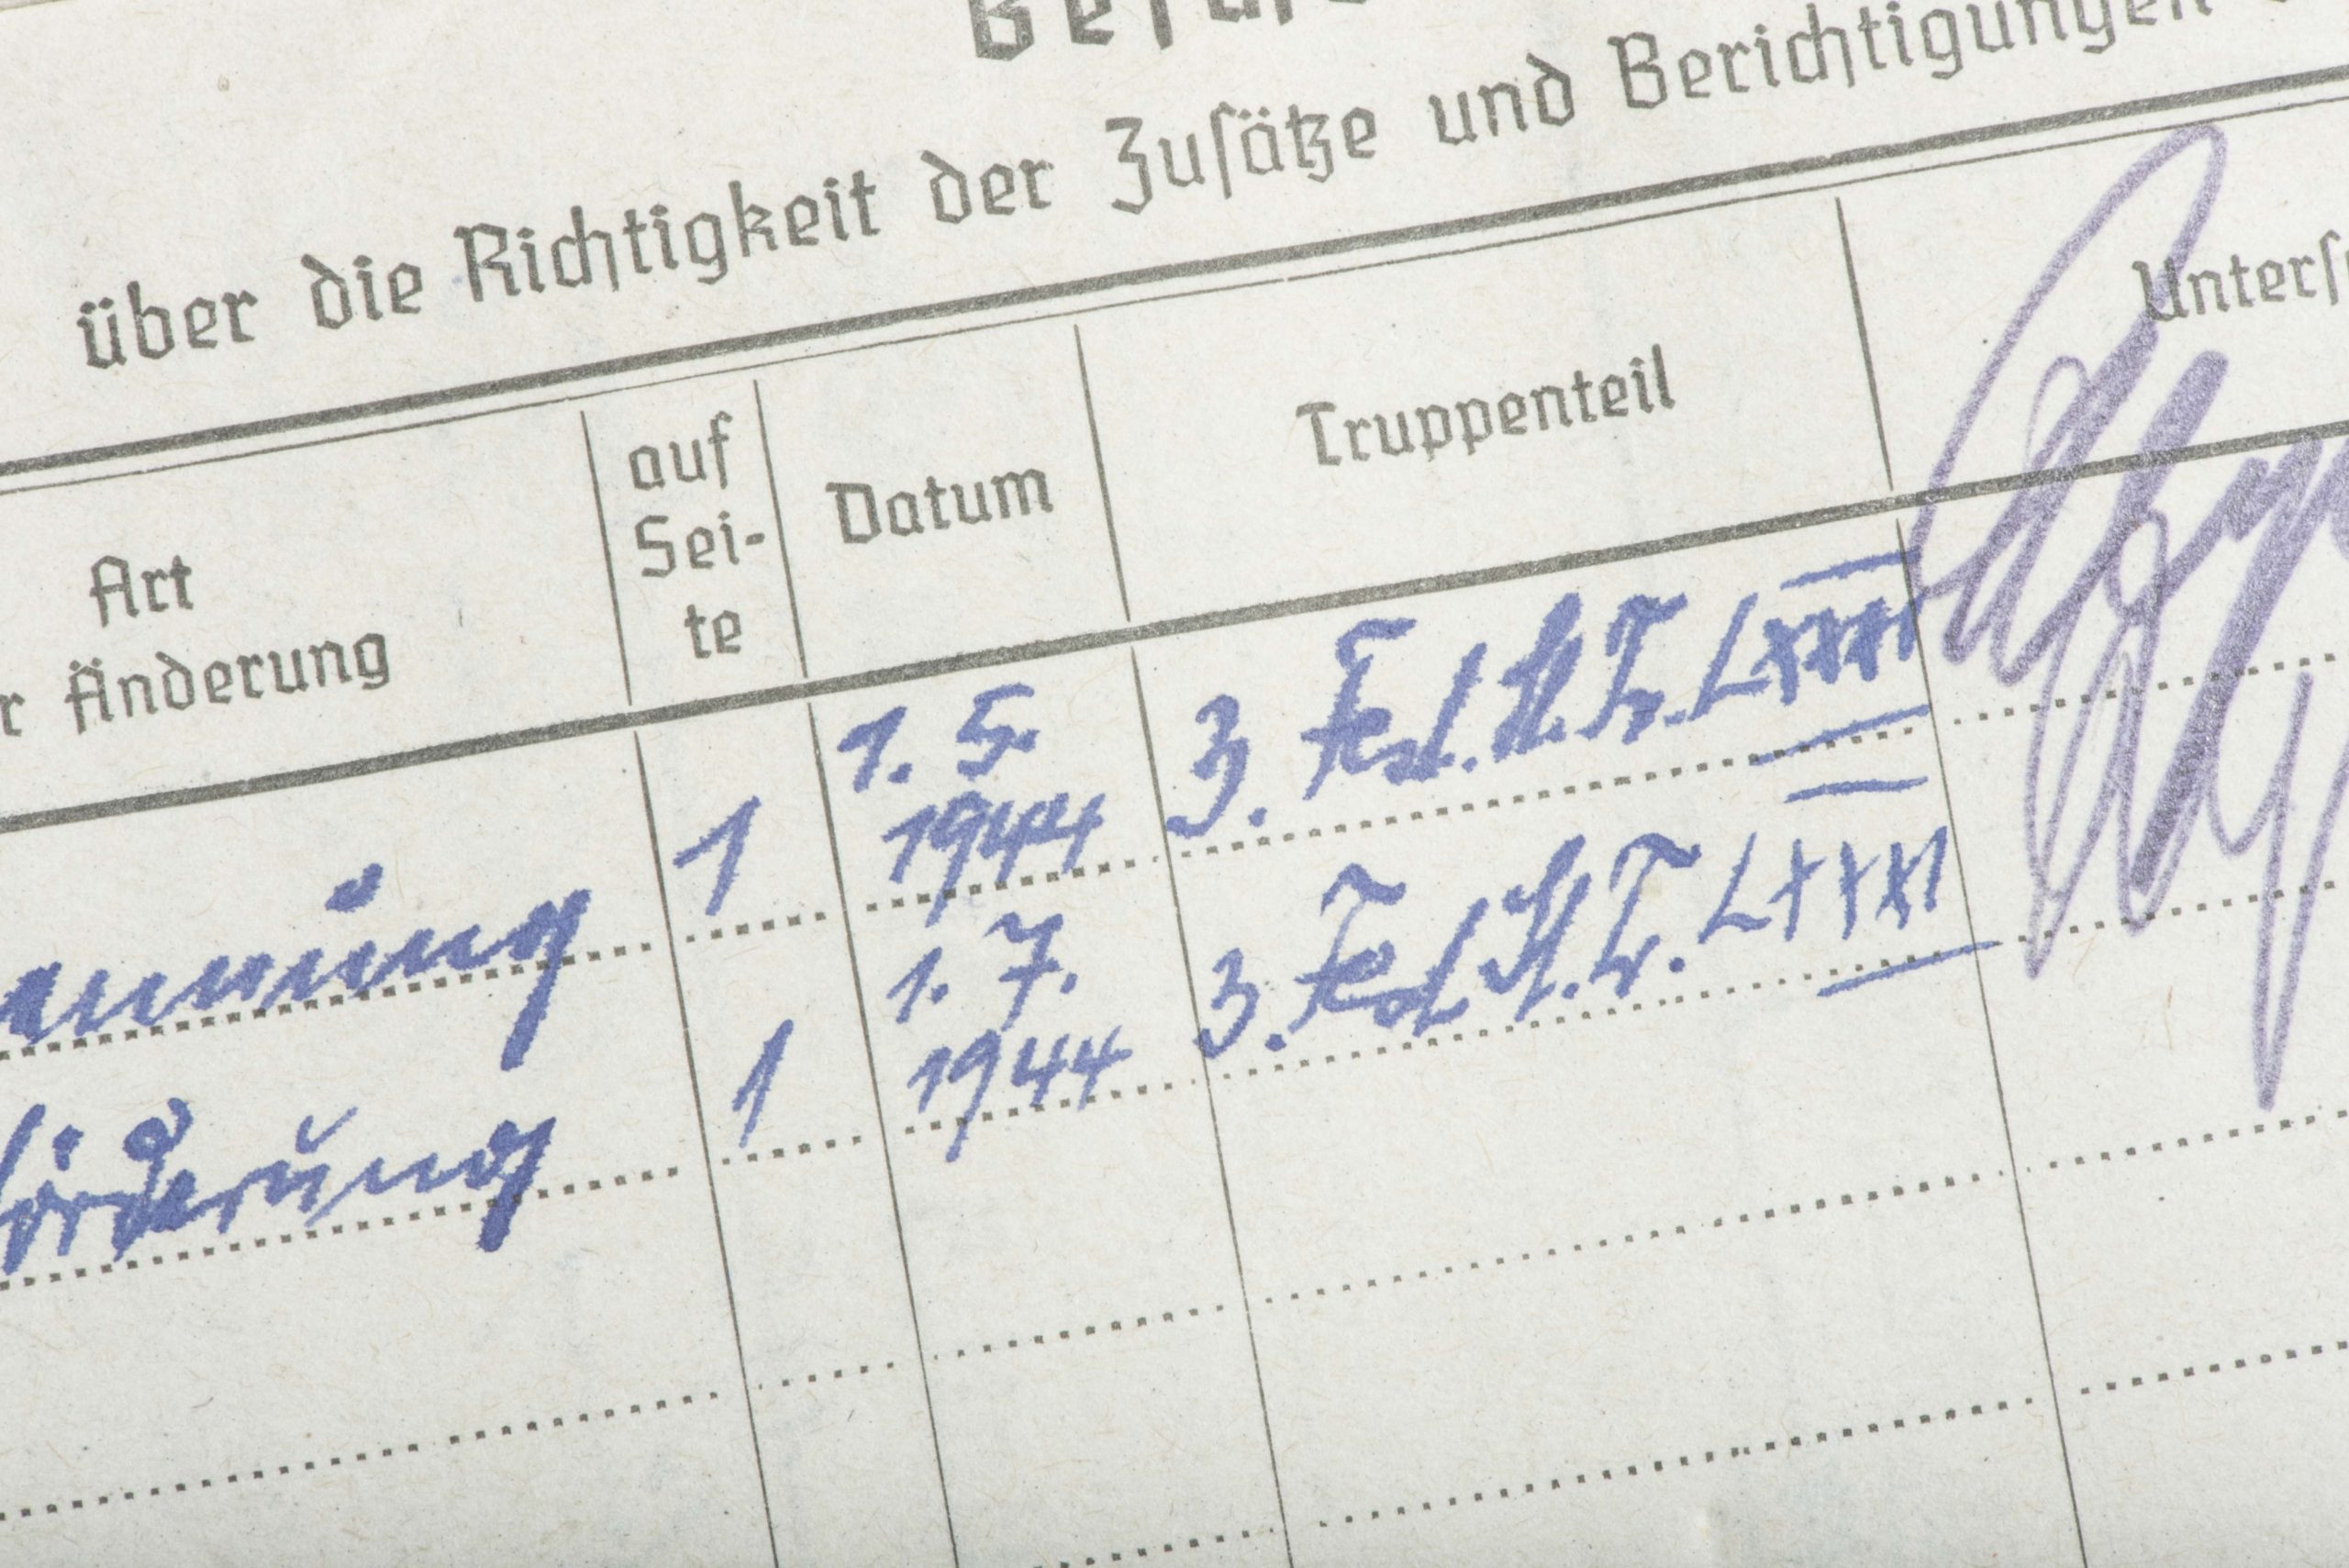 über die Richtigkeit der Zusätze und Berichtigungen
Art
Änderung
auf
Sei-
te
Datum
Truppenteil
Unters
1
1. 5.
1944
3. Fest. St. Tr. LXXXI
örderung
1
1. 7.
1944
3. Fest. St. Tr. LXXXI